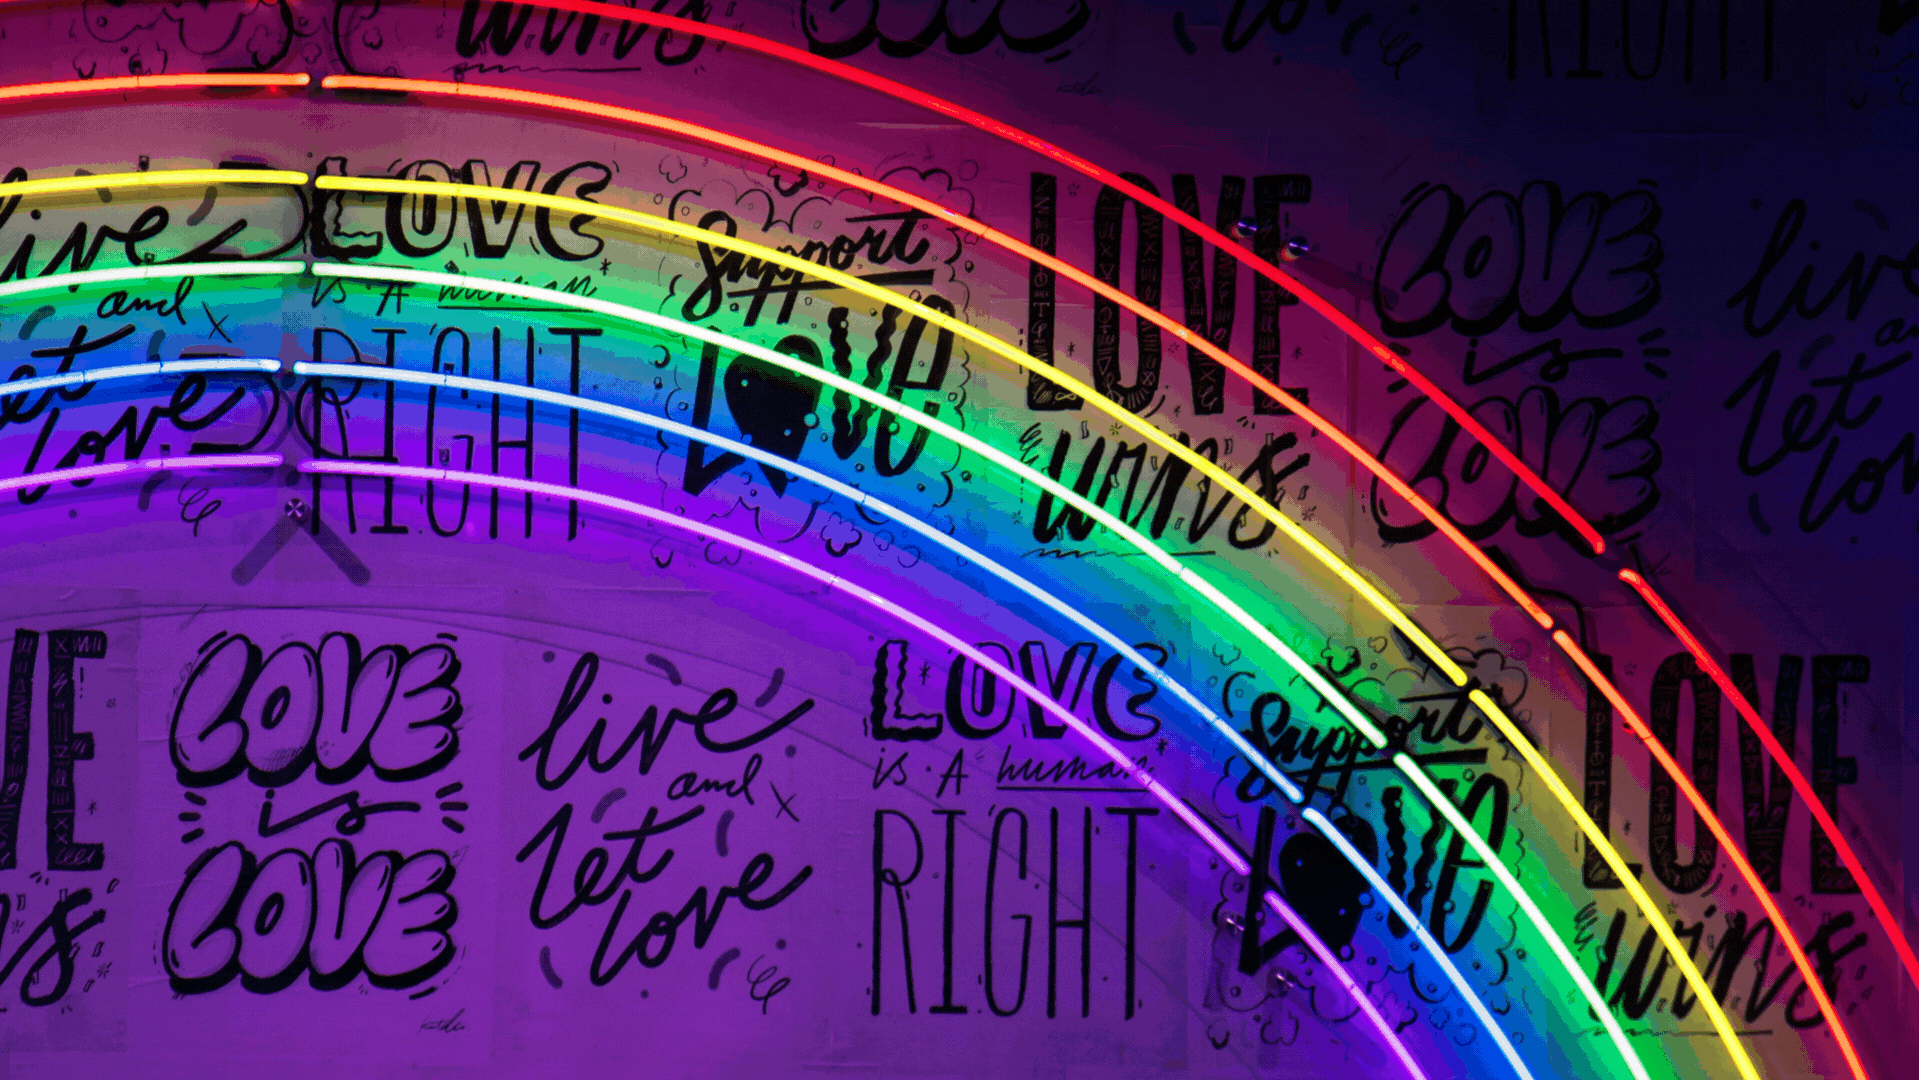 wins
LOVE
RIGHT
live
and
let
love
LOVE
is A human
RIGHT
Support
LOVE
LOVE
wins
LOVE
is
LOVE
live
let
LOVE
is
LOVE
live
and
let
love
LOVE
is A human
RIGHT
Support
LOVE
LOVE
wins